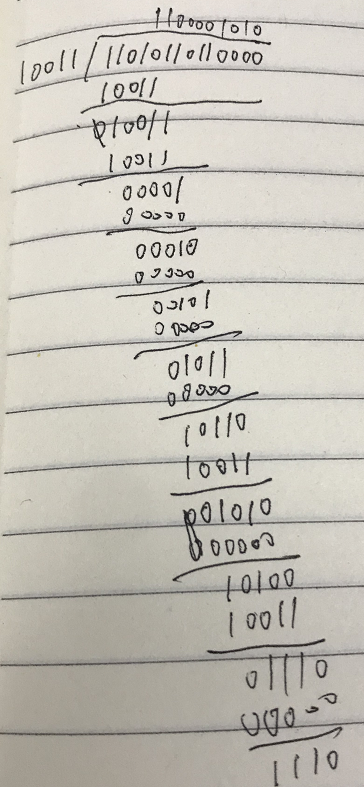 1100001010
10011 / 11010110110000
10011
010011
10011
00001
00000
00010
00000
00101
00000
01011
00000
10110
10011
001010
000000
10100
10011
01110
00000
1110